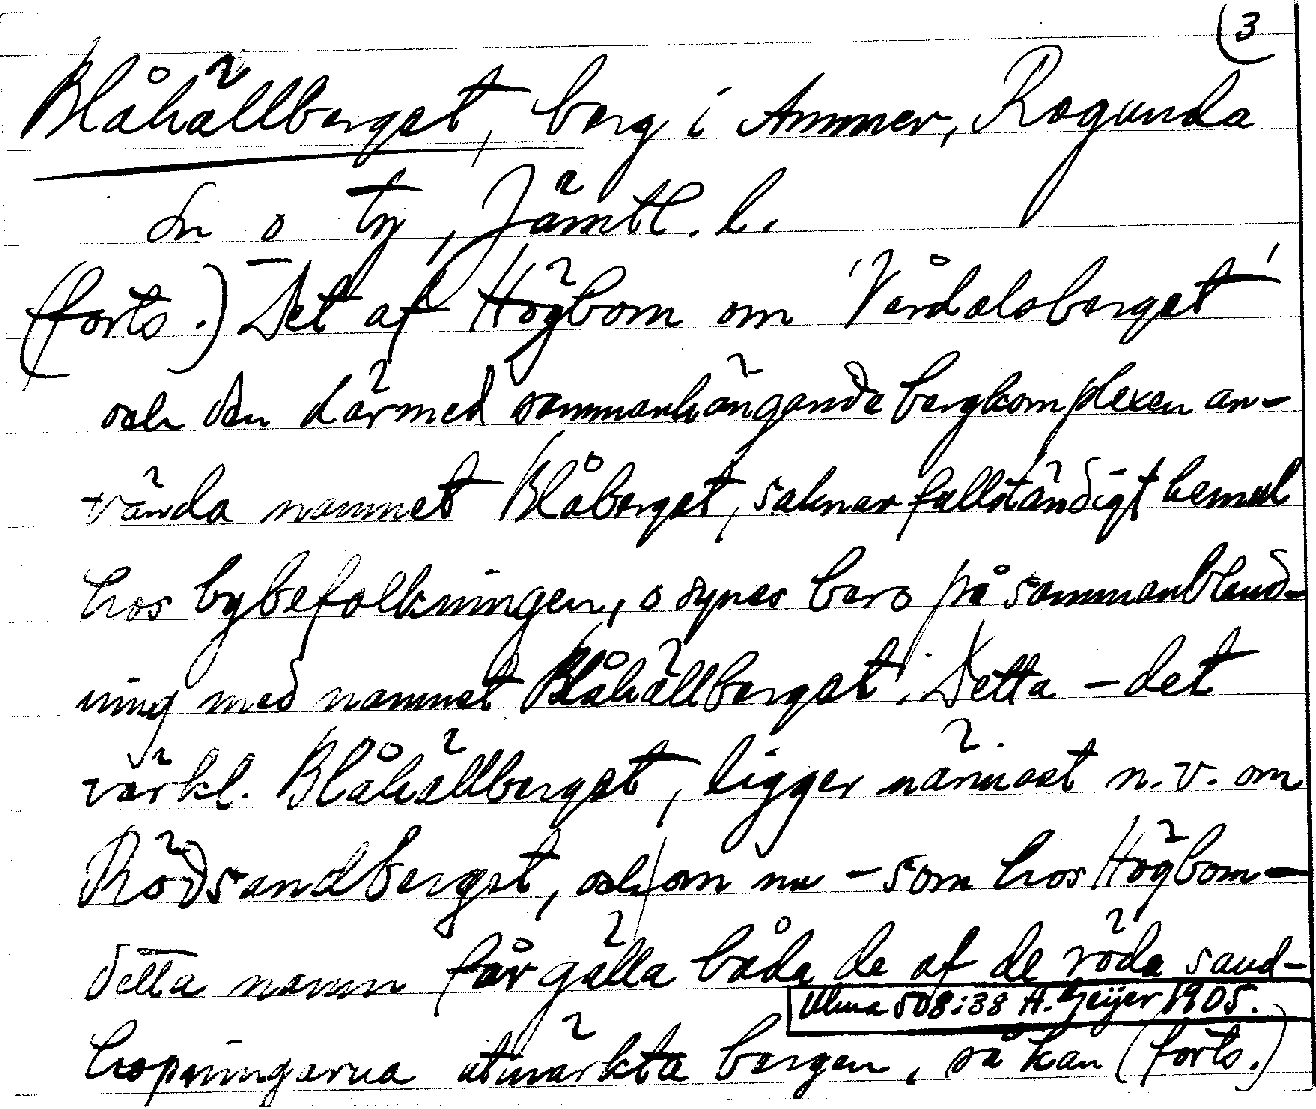 (3
Blåhällberget, berg i Ammer, Ragunda
sn o tg, Jämtl. l.
(forts.) Det af Högbom om 'Vårdalsberget'
och den därmed sammanhängande bergkomplexen an-
vända namnet Blåberget, saknar fullständigt hemul
hos bybefolkningen, o synes bero på sammanbland-
ning med namnet Blåhällberget. Detta - det
värkl. Blåhällberget, ligger närmast n.v. om
Rödsandberget, och om nu - som hos Högbom -
detta namn får gälla båda de af de röda sand-
Ulma 508:38 H. Geijer 1905.
hopningarna utmärkta bergen, så kan (forts.)